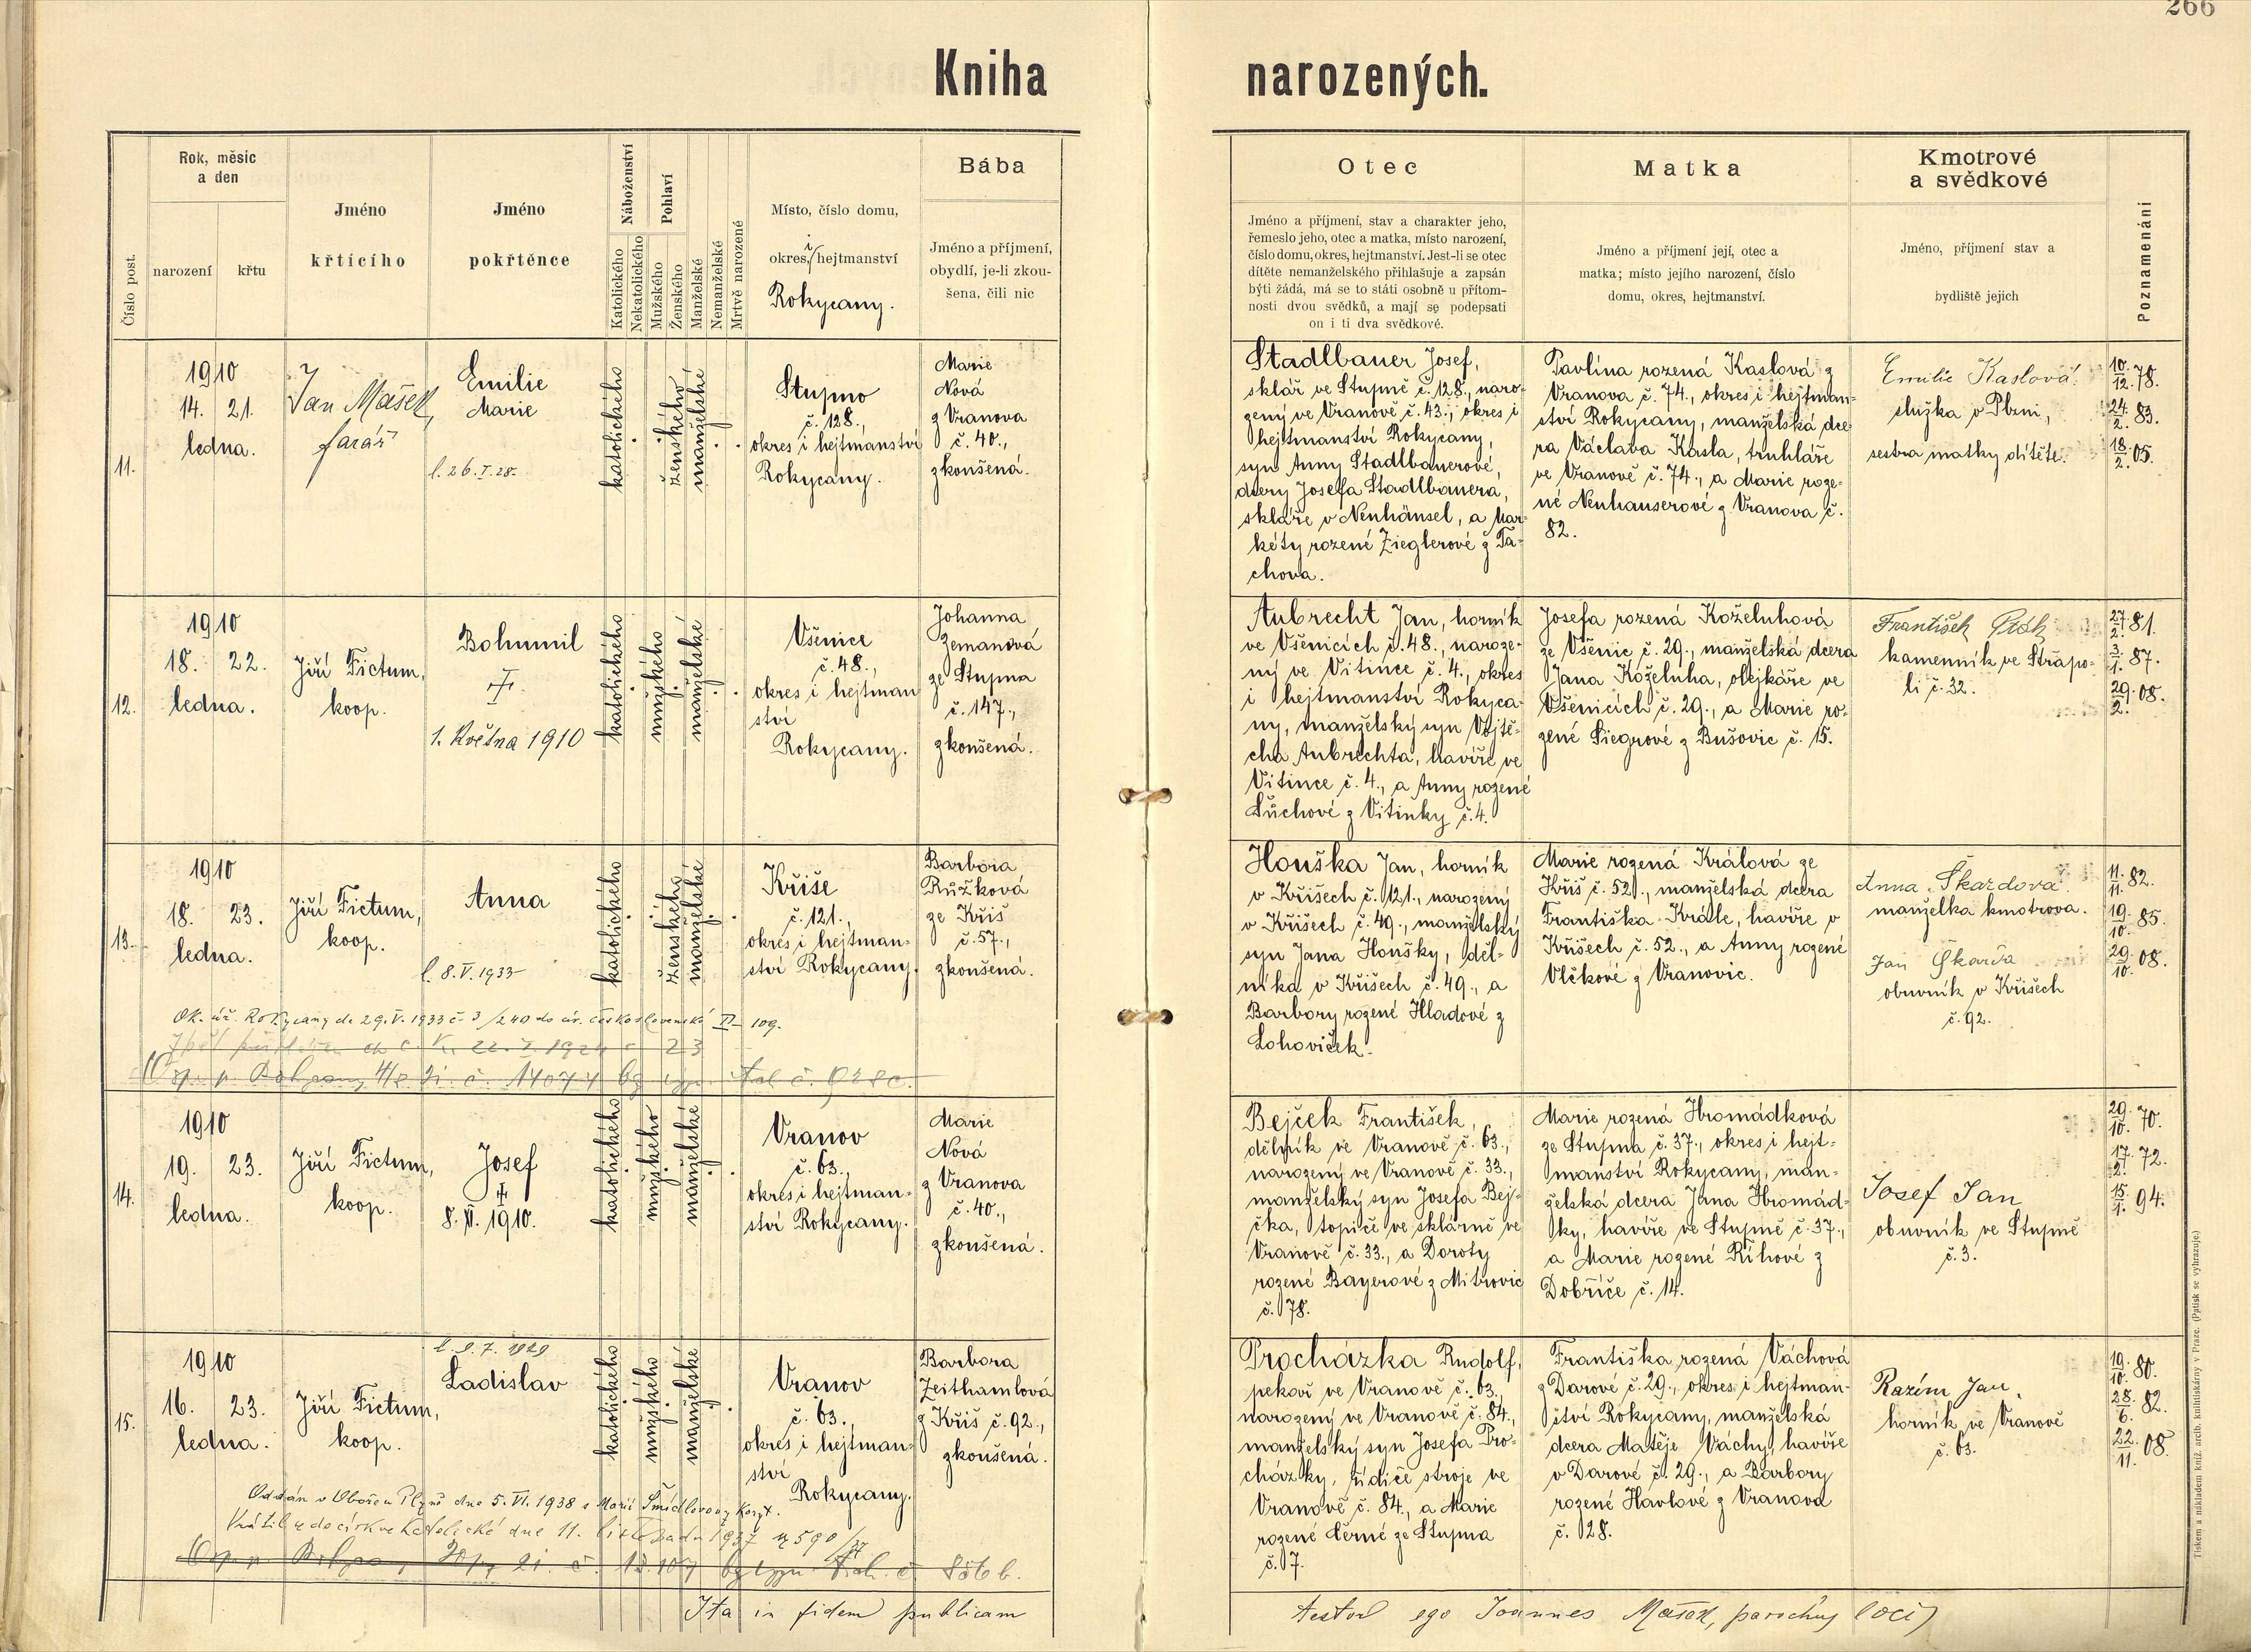 266
Kniha narozených.
Číslo post.
Rok, měsíc
a den
narození
křtu
Jméno
křtícího
Jméno
pokřtěnce
Náboženství
Katolického
Nekatolického
Pohlaví
Mužského
Ženského
Manželské
Nemanželské
Mrtvě narozené
Místo, číslo domu,
okres, i hejtmanství
Rokycany.
Bába
Jméno a příjmení,
obydlí, je-li zkou-
šena, čili nic
Otec
Jméno a příjmení, stav a charakter jeho,
řemeslo jeho, otec a matka, místo narození,
číslo domu, okres, hejtmanství. Jest-li se otec
dítěte nemanželského přihlašuje a zapsán
býti žádá, má se to státi osobně u přítom-
nosti dvou svědků, a mají se podepsati
on i ti dva svědkové.
Matka
Jméno a příjmení její, otec a
matka; místo jejího narození, číslo
domu, okres, hejtmanství.
Kmotrové
a svědkové
Jméno, příjmení stav a
bydliště jejich
Poznamenání
11.
1910
14. 21.
ledna.
Jan Mašek,
farář
Emilie
Marie
l. 26. I. 28.
katolického
ženského
manželské
Stupno
č. 128.,
okres i hejtmanství
Rokycany.
Marie
Nová
z Vranova
č. 40.,
zkoušená.
Stadlbauer Josef,
sklář ve Stupně č. 128., naro-
zený ve Vranově č. 43., okres i
hejtmanství Rokycany,
syn Anny Stadlbauerové,
dcery Josefa Stadlbauera,
skláře v Neuhäusel, a Mar-
kéty rozené Zieglerové z Ta-
chova.
Pavlína rozená Kaslová z
Vranova č. 74., okres i hejtman-
ství Rokycany, manželská dce-
ra Václava Kasla, truhláře
ve Vranově č. 74., a Marie roze-
né Neuhauserové z Vranova č.
82.
Emilie Kaslová.
služka v Plzni,
sestra matky dítěte.
10./12. 78.
24./2. 83.
18./2. 05.
12.
1910
18. 22.
ledna.
Jiří Fictum,
koop.
Bohumil
1. Května 1910
katolického
mužského
manželské
Všenice
č. 48.,
okres i hejtman
ství
Rokycany.
Johanna
Zemanová
ze Stupna
č. 147.,
zkoušená.
Aubrecht Jan, horník
ve Všenicích č. 48., naroze-
ný ve Vitince č. 4., okres
i hejtmanství Rokyca-
ny, manželský syn Vojtě-
cha Aubrechta, havíře ve
Vitince č. 4., a Anny rozené
Šůchové z Vitinky č. 4.
Josefa rozená Koželuhová
ze Všenic č. 29., manželská dcera
Jana Koželuha, olejkáře ve
Všenicích č. 29., a Marie ro-
zené Siegrové z Bušovic č. 15.
František
kamenník ve Strapo-
li č. 32.
27./2. 81.
3./1. 87.
29./2. 08.
13.
1910
18. 23.
ledna.
Jiří Fictum,
koop.
Anna
l. 8. V. 1933
katolického
ženského
manželské
Kříše
č. 121.,
okres i hejtman-
ství Rokycany.
Barbora
Růžková
ze Kříš
č. 57.,
zkoušená.
Ok. úř. Rokycany de 29. V. 1933 č. 3/240 do cír. československé II - 109.
Houška Jan, horník
v Kříšech č. 121., narozený
v Kříšech č. 49., manželský
syn Jana Houšky, děl-
níka v Kříšech č. 49., a
Barbory rozené Hladové z
Lohoviček.
Marie rozená Králová ze
Kříš č. 52., manželská dcera
Františka Krále, havíře v
Kříšech č. 52., a Anny rozené
Vlčkové z Vranovic.
Anna Škardova.
manželka kmotrova.
Jan Škarda
obuvník v Kříšech
č. 92.
11./11. 82.
19./10. 85.
29./10. 08.
14.
1910
19. 23.
ledna.
Jiří Fictum,
koop.
Josef
8. VI. 1910.
katolického
mužského
manželské
Vranov
č. 63.,
okres i hejtman-
ství Rokycany.
Marie
Nová
z Vranova
č. 40.,
zkoušená.
Bejček František,
dělník ve Vranově č. 63.,
narozený ve Vranově č. 33.,
manželský syn Josefa Bej-
čka, topiče ve sklárně ve
Vranově č. 33., a Doroty
rozené Bayerové z Mitrovic
č. 78.
Marie rozená Hromádková
ze Stupna č. 37., okres i hejt-
manství Rokycany, man-
želská dcera Jana Hromád-
ky, havíře ve Stupně č. 37.,
a Marie rozené Říhové z
Dobříče č. 14.
Josef Jan
obuvník ve Stupně
č. 3.
29./10. 70.
17./2. 72.
15./1. 94.
15.
1910
16. 23.
ledna.
Jiří Fictum,
koop.
l. 9. 7. 1929
Ladislav
katolického
mužského
manželské
Vranov
č. 63.,
okres i hejtman-
ství
Rokycany.
Barbora
Zeithamlová
z Kříš č. 92.,
zkoušená.
Oddán v Obořen Plzně dne 5. VI. 1938 s Marií Šmídlovou
Vrátil se do církve katolické dne 11. listopadu 1937 čj 590/37
Procházka Rudolf,
pekař ve Vranově č. 63.,
narozený ve Vranově č. 84.,
manželský syn Josefa Pro-
cházky, řídiče stroje ve
Vranově č. 84., a Marie
rozené Černé ze Stupna
č. 7.
Františka rozená Váchová
z Darové č. 29., okres i hejtman-
ství Rokycany, manželská
dcera Matěje Váchy, havíře
v Darové č. 29., a Barbory
rozené Havlové z Vranova
č. 28.
Razím Jan,
horník ve Vranově
č. 63.
19./10. 80.
28./6. 82.
22./11. 08.
Ita in fidem publicam testor ego Joannes Mašek, parochus loci
Tiskem a nákladem kníž. arcib. knihtiskárny v Praze. (Patisk se vyhrazuje)